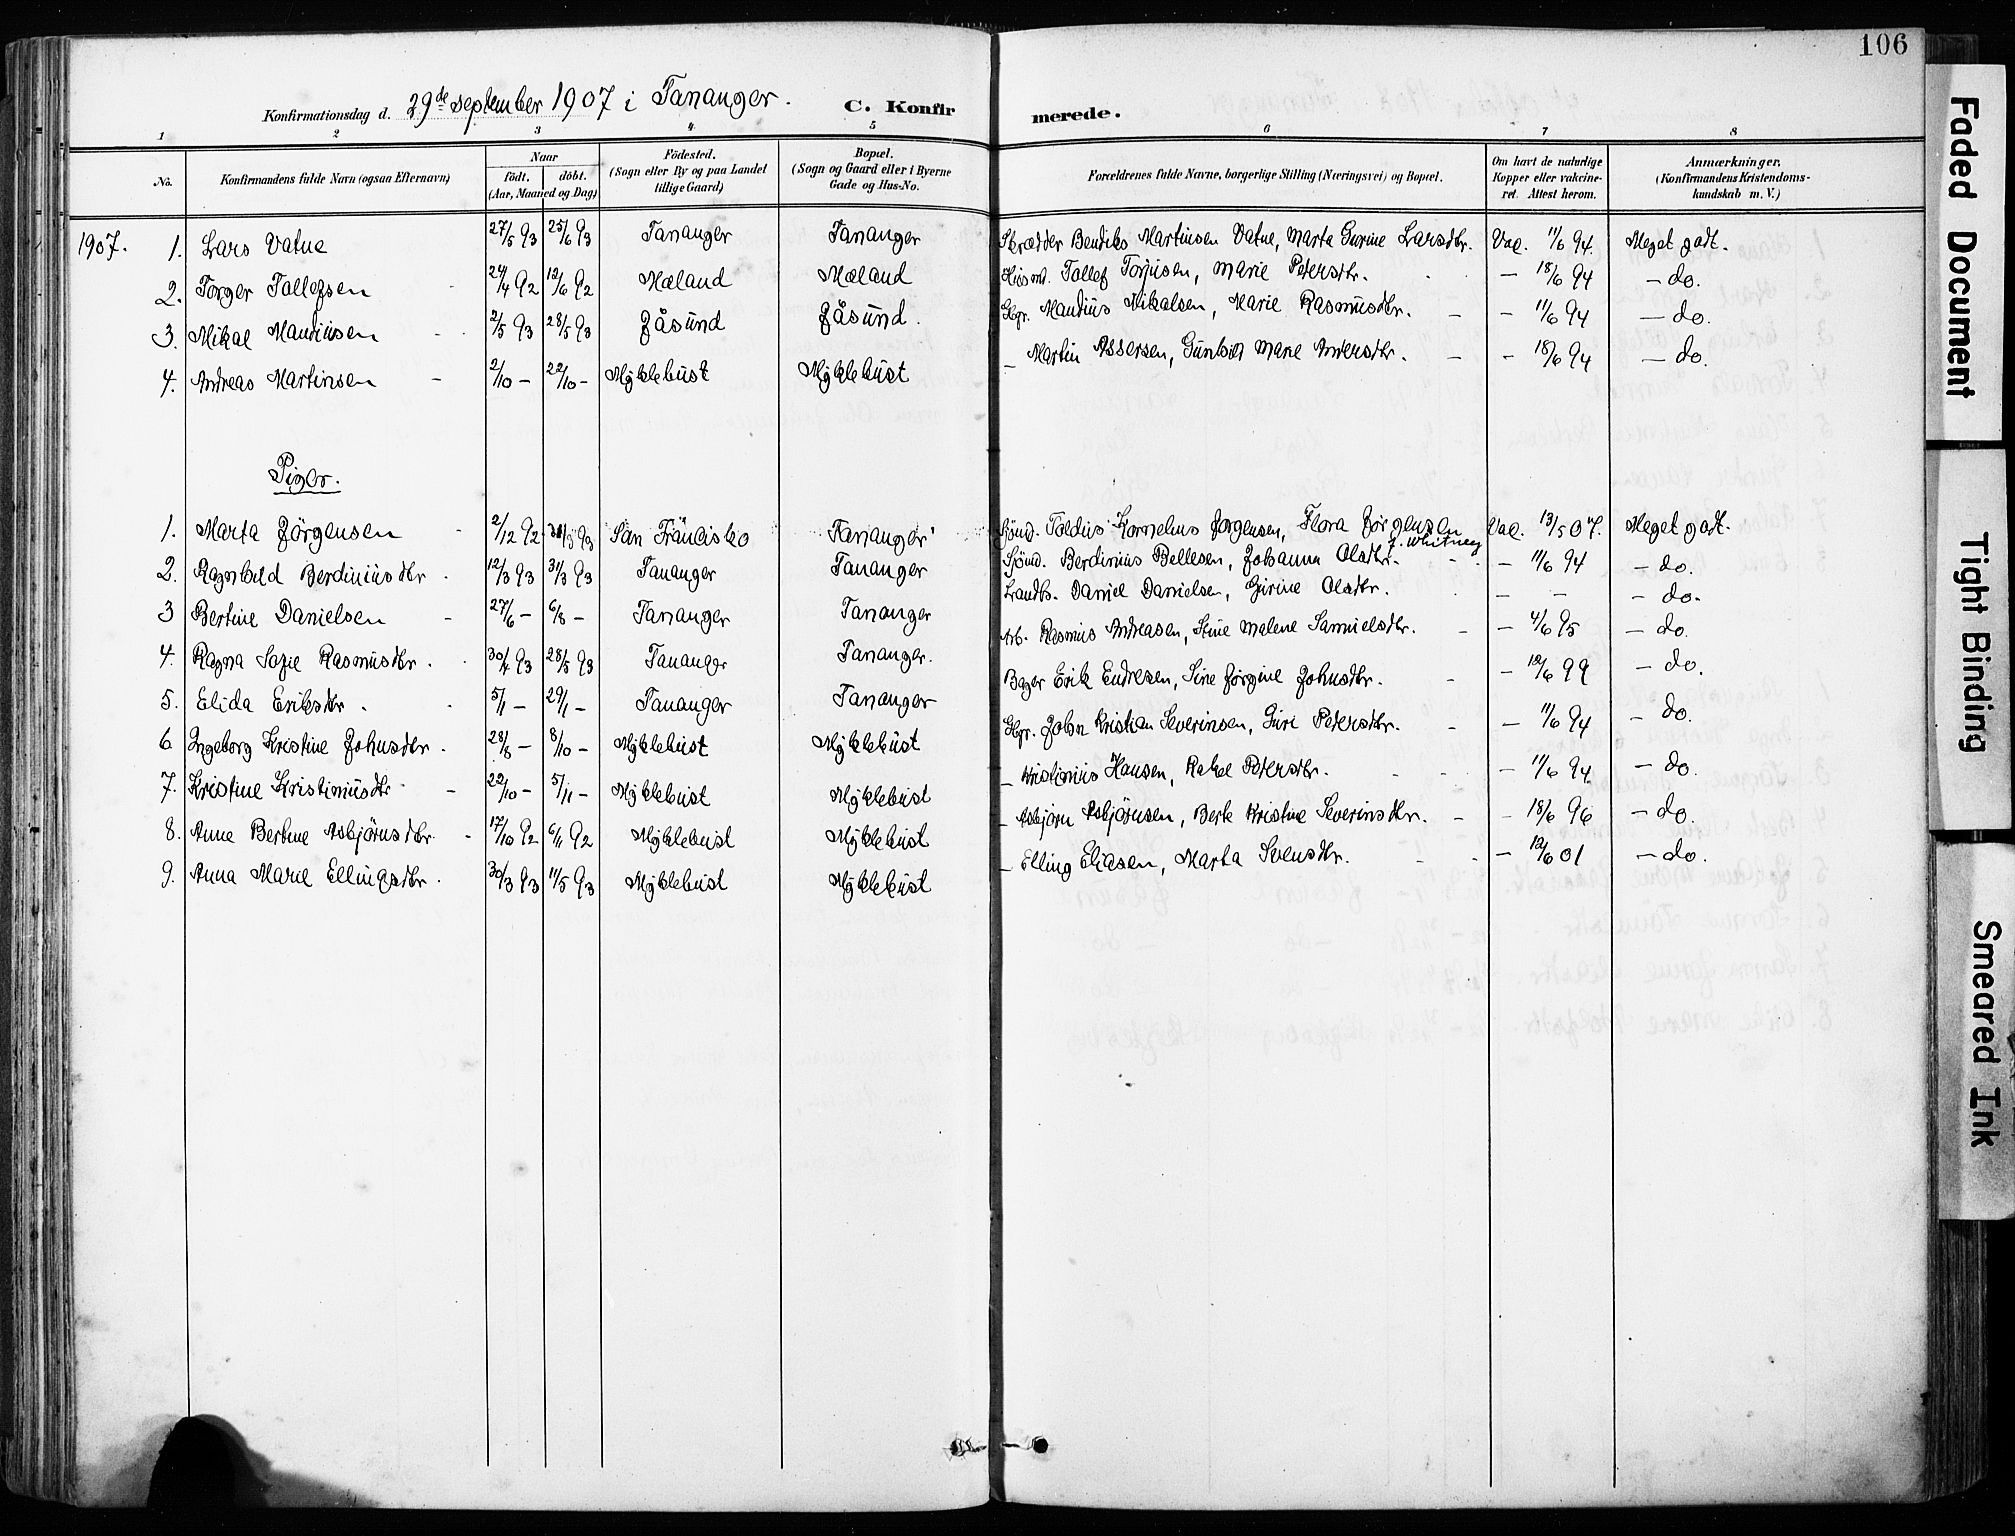 106
Konfirmationsdag d. 29de september 1907 i Tananger. C. Konfirmerede.
1 2 3 4 5 6 7 8
No. Konfirmandens fulde Navn (ogsaa Efternavn) Naar födt. döbt. (Aar, Maaned og Dag) Födested. (Sogn eller By og paa Landet tillige Gaard) Bopæl. (Sogn og Gaard eller i Byerne Gade og Hus-No. Forældrenes fulde Navne, borgerlige Stilling (Næringsvei) og Bopæl. Om havt de naturlige Kopper eller vakcineret. Attest herom. Anmærkninger. (Konfirmandens Kristendomskundskab m. V.)
1907. 1. Lars Vatne 27/5 93 25/6 93 Tananger Tananger Skrædder Bendiks Martinsen Vatne, Marta Gurine Larsdtr. Vac. 11/6 94. Meget godt.
2. Torger Tollefsen 24/4 92 12/6 92 Mæland Mæland Husmd. Tollef Torjusen, Marie Petersdtr. — 18/6 94 — do.
3. Mikal Mauritsen 2/5 93 28/5 93 Jåsund Jåsund. Gbr. Mauritius Mikalsen, Marie Rasmusdtr. — 11/6 94 — do.
4. Andreas Martinsen 2/10 — 22/10 — Myklebust Myklebust — Martin Assersen, Gunhild Marie Andersdtr. — 18/6 94 — do.
Piger.
1. Marta Jörgensen 2/12 92 /3 93 San Francisko Tananger Sjömd. Toldius Kornelius Jörgensen, Flora Jörgensen f. Whitney Vac. 13/5 07. Meget godt.
2. Ragnhild Berdiniusdtr. 12/3 93 31/3 93 Tananger Tananger Sjömd. Berdinius Bellesen, Johanna Olsdtr. — 11/6 94 — do.
3 Bertine Danielsen 27/6 — 6/8 — Tananger Tananger Landh. Daniel Danielsen, Gurine Olsdtr. — — — do.
4. Ragna Sofie Rasmusdtr. 30/4 93 28/5 93 Tananger Tananger. Arb. Rasmus Andreasen, Stine Malene Samuelsdtr. — 4/6 95 — do.
5. Elida Eriksdtr. 5/1 — 29/1 — Tananger Tananger Bager Erik Endresen, Sine Jörgine Johnsdtr. — 12/6 99 — do.
6. Ingeborg Kristine Johnsdtr. 28/8 — 8/10 — Myklebust Myklebust Gbr. John Kristian Severinsen, Guri Petersdtr. — 11/6 94 — do.
7. Kristine Kristiniusdtr — 22/10 — 5/11 — Myklebust Myklebust — Kristinius Hansen, Rakel Petersdtr. — 11/6 94. — do.
8. Anne Bertine Asbjörnsdtr. 17/10 92 6/11 92 Myklebust Myklebust — Asbjörn Asbjörnsen, Berte Kristine Severinsdtr. — 18/6 96 — do.
9. Anna Marie Ellingsdtr. 30/3 93 11/5 93 Myklebust Myklebust — Elling Eliasen, Marta Svensdtr. — 12/6 01 — do.
Faded Document
Tight Binding
Smeared Ink